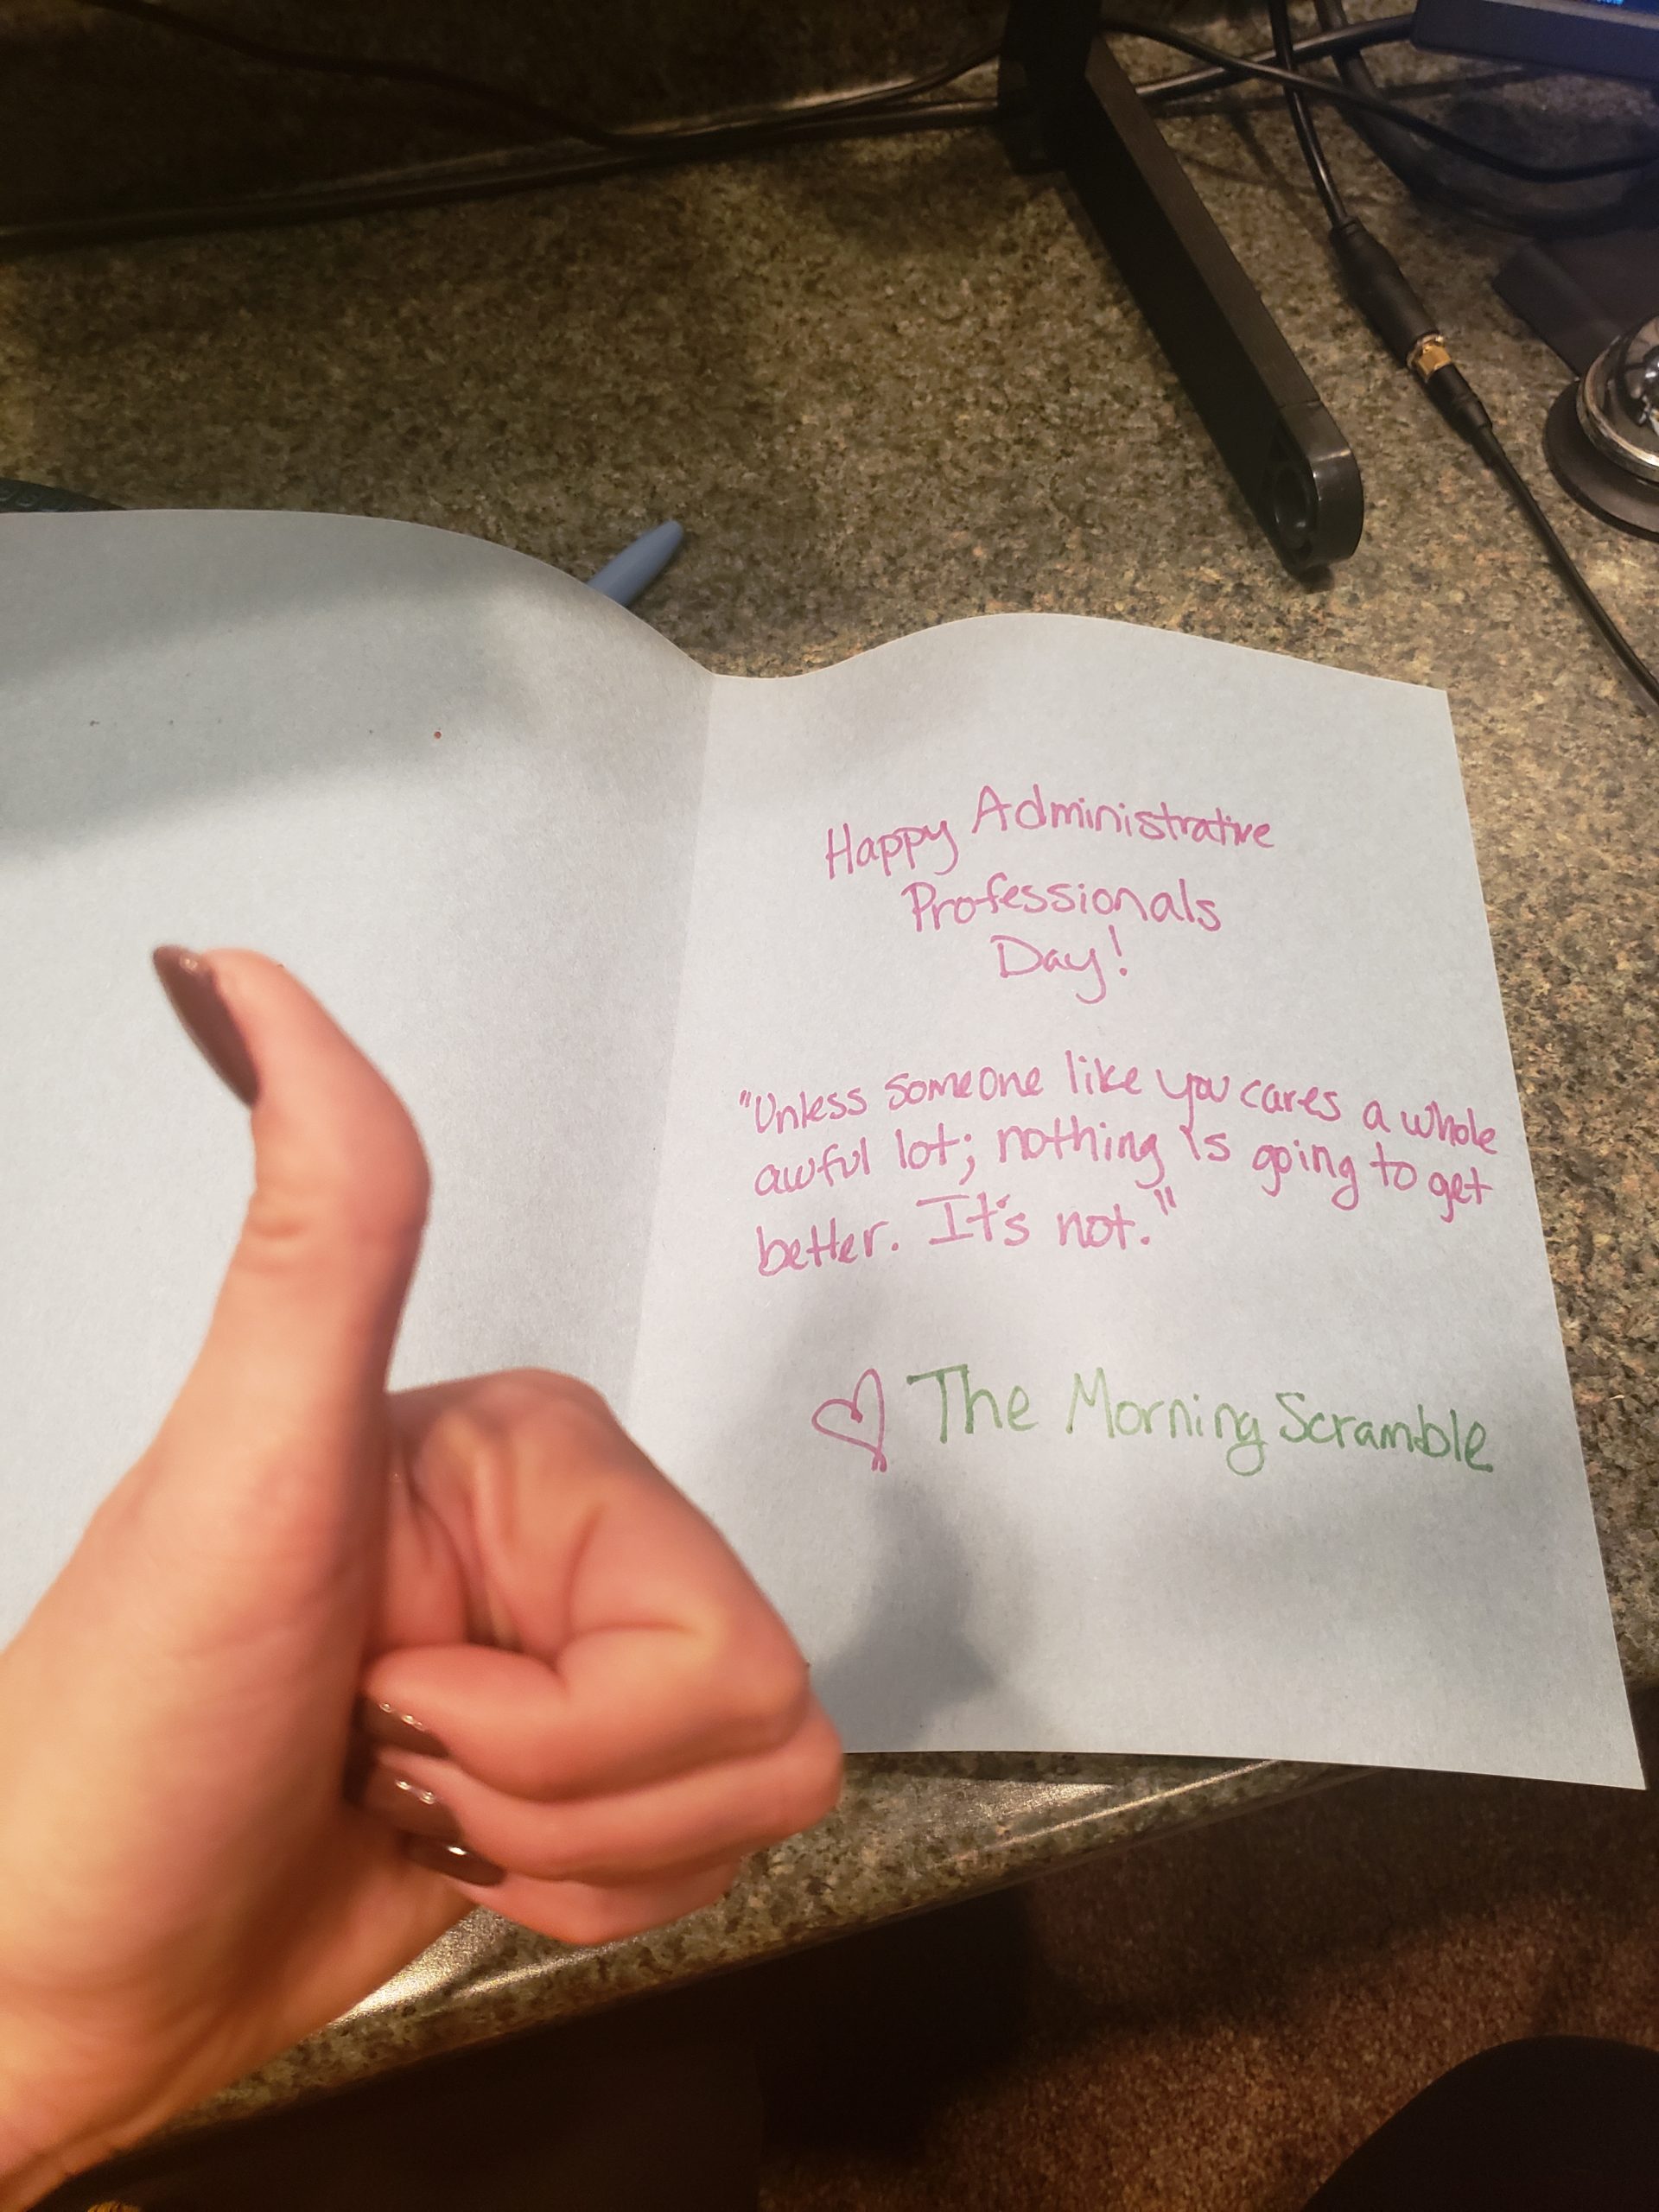 Happy Administrative
Professionals
Day!
"Unless someone like you cares a whole
awful lot; nothing is going to get
better. It's not."
♡ The Morning Scramble